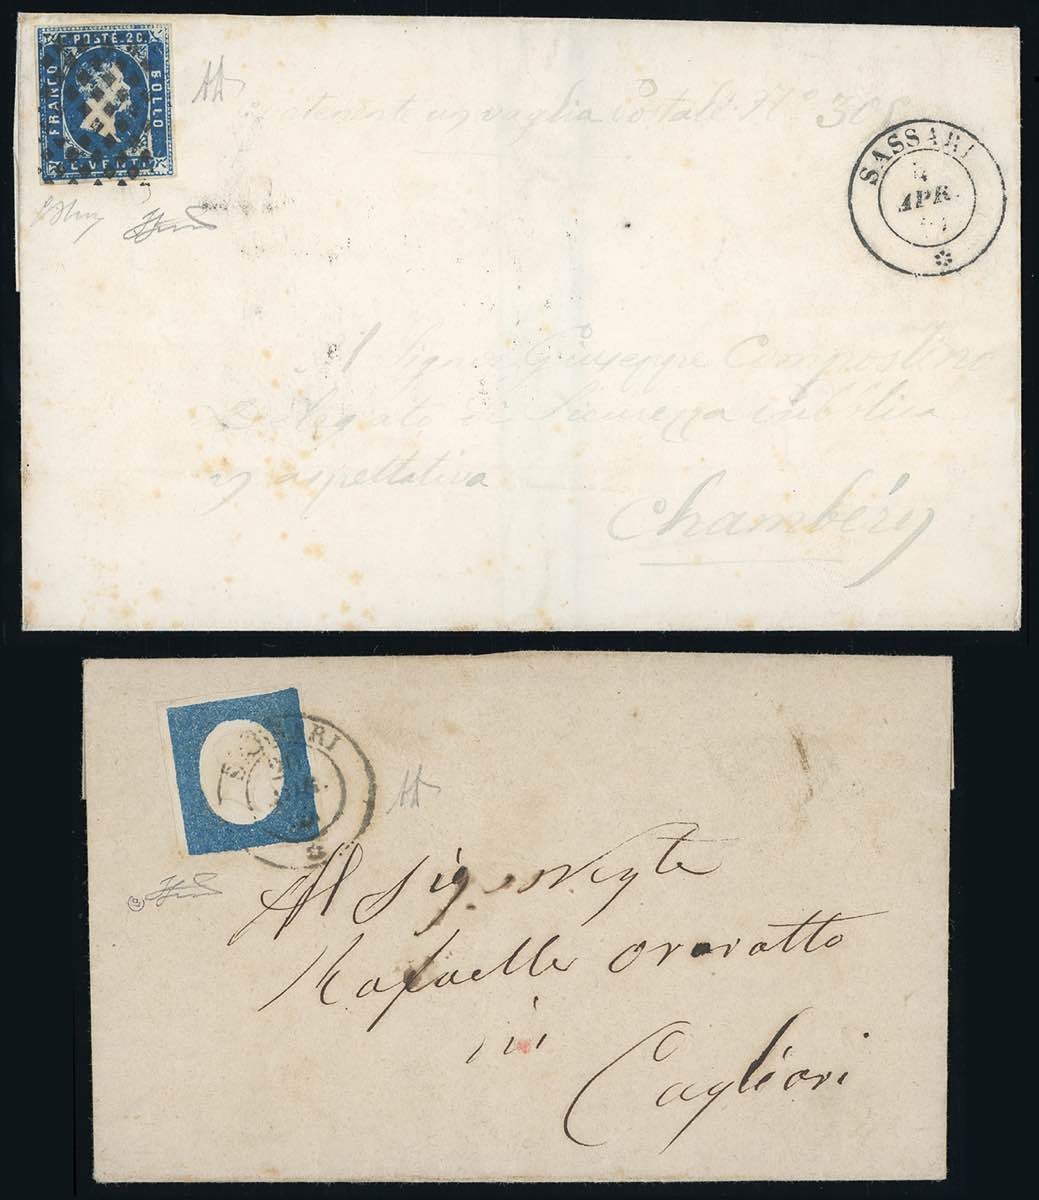 C. POSTE. 20.
FRANCO
BOLLO
C. VENTI
contenente un vaglia postale N° 308
SASSARI
APR.
Al Signor Giuseppe Campostino
Delegato di Sicurezza pubblica
in aspettativa
Chambéry
Al Sig.
Rafaelle
in
Cagliari